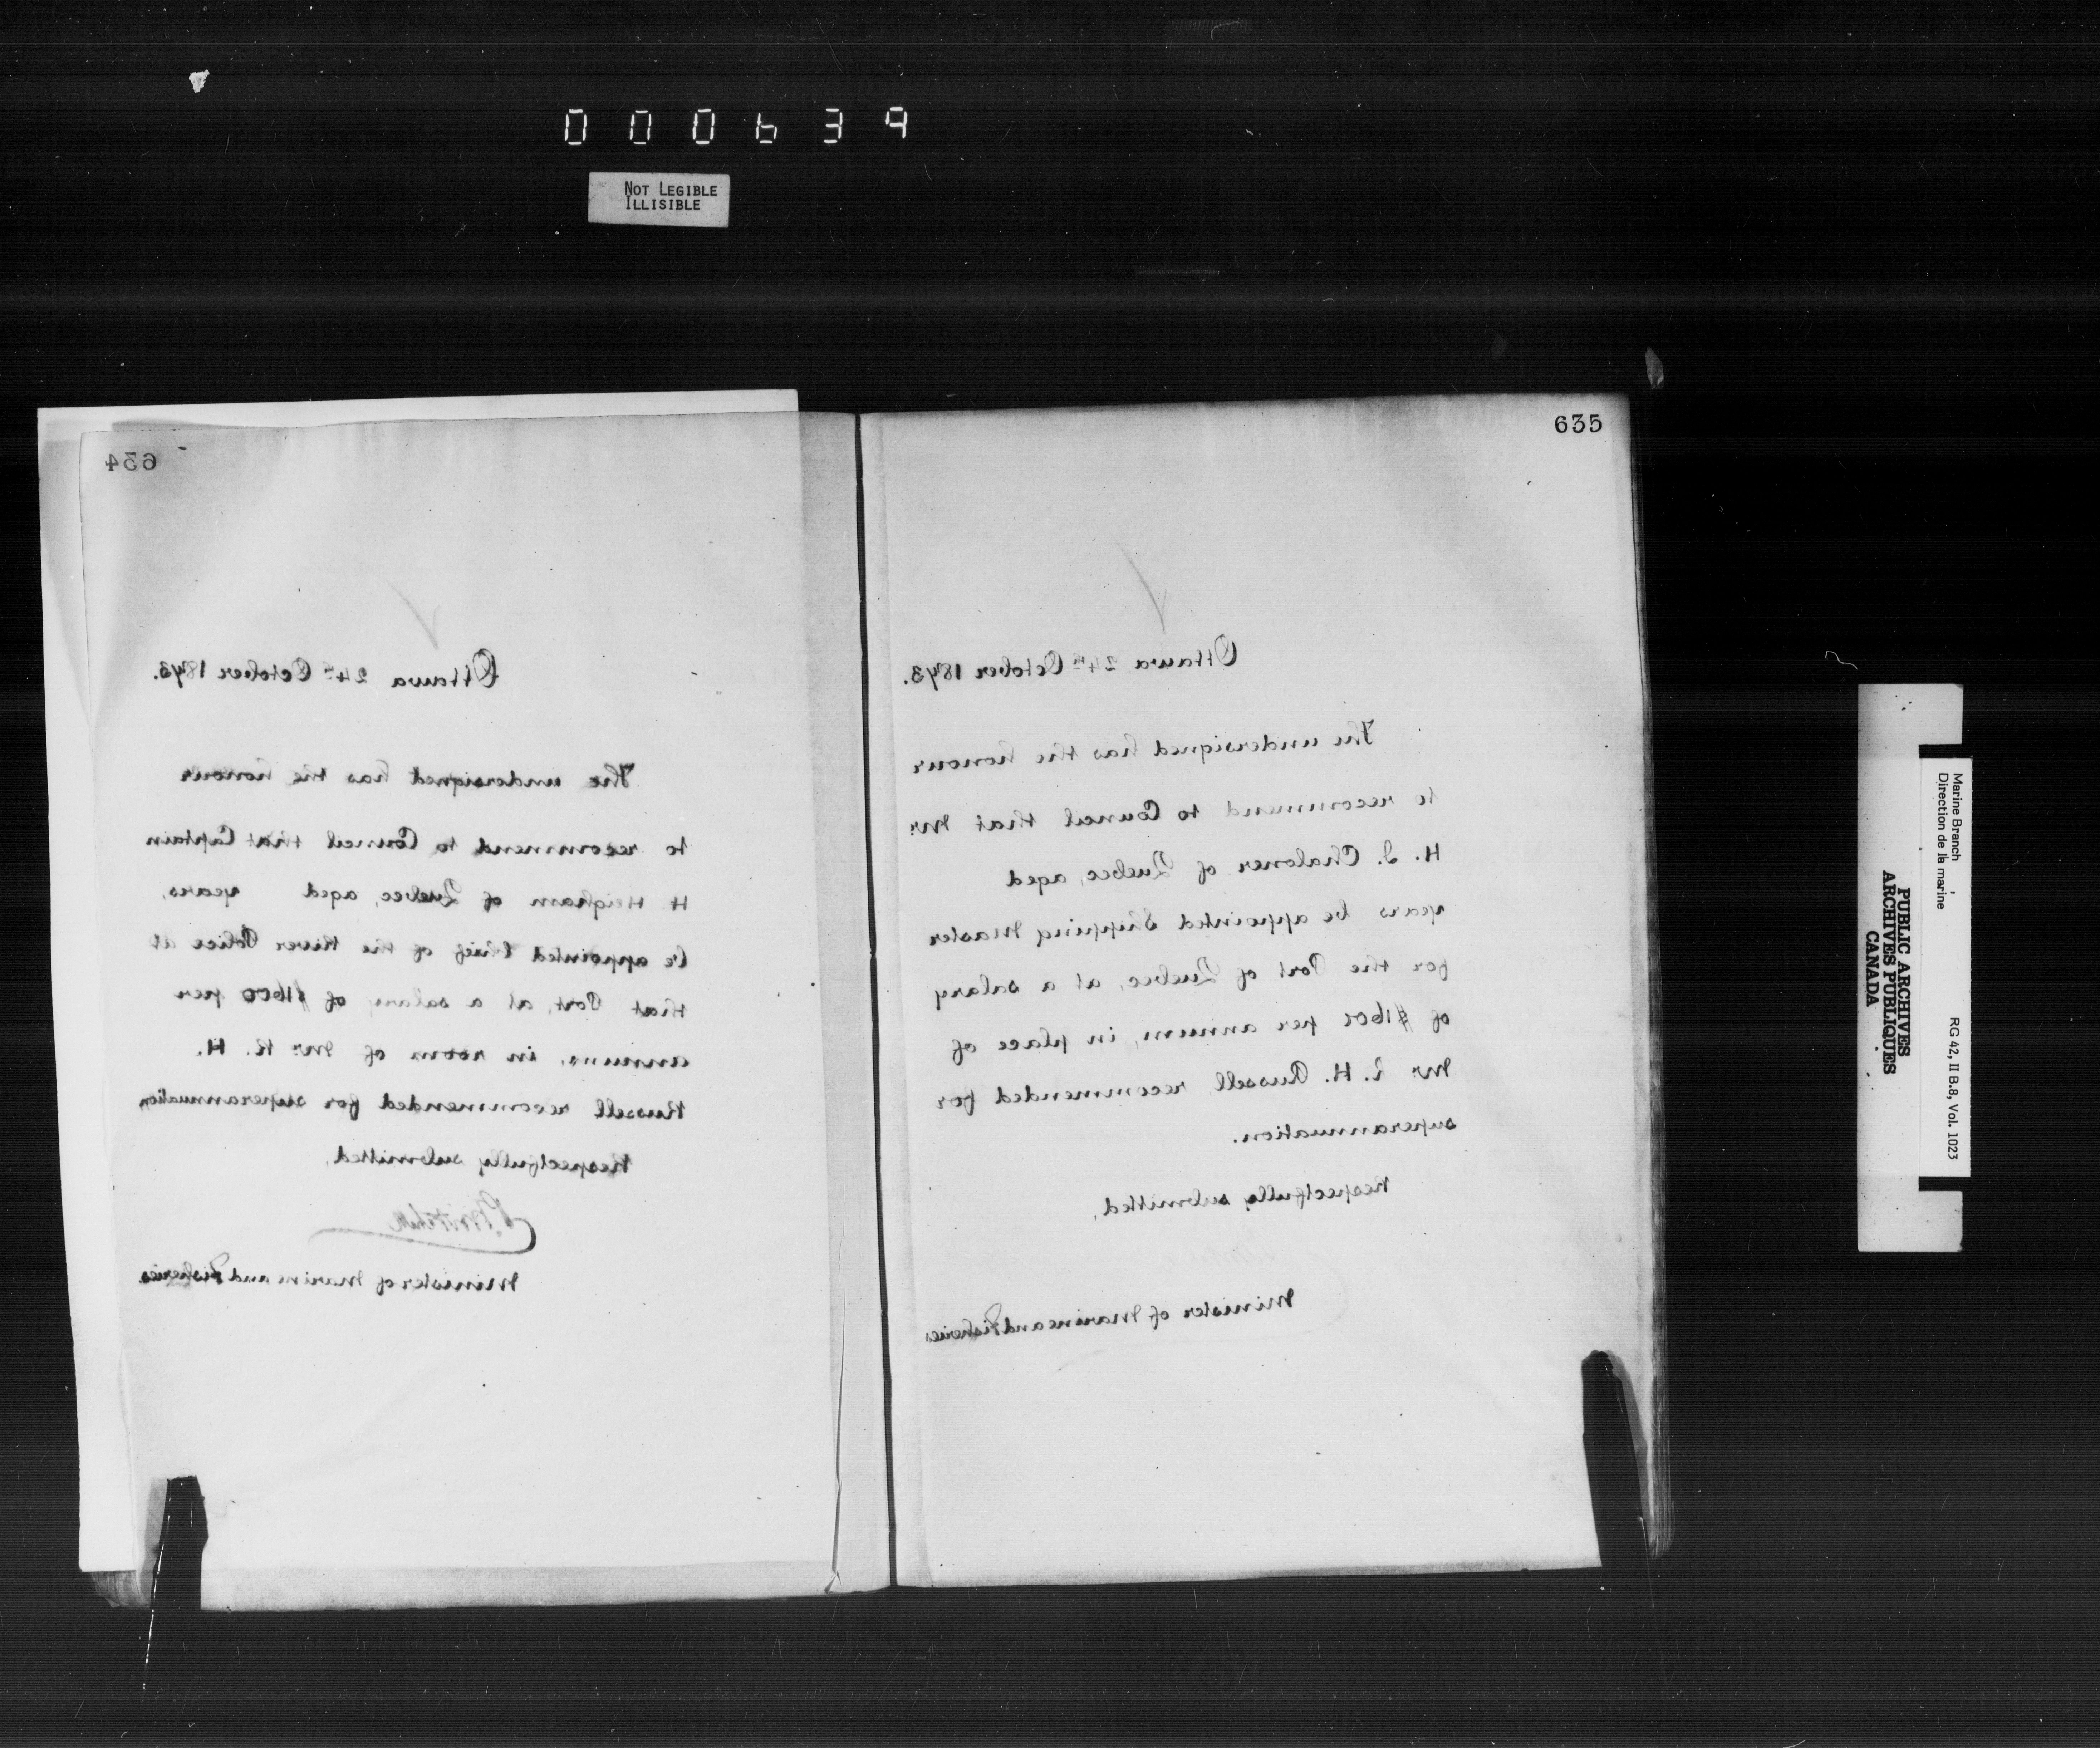 000639
NOT LEGIBLE
ILLISIBLE
634
Ottawa 24th October 1873.
The undersigned has the honour
to recommend to Council that Captain
H Heigham of Quebec, aged years,
be appointed Chief of the River Police at
that Port, at a salary of $1600 per
annum, in room of Mr. R. H.
Russell recommended for superannuation
Respectfully submitted,
P. Mitchell
Minister of Marine and Fisheries
635
Ottawa 24th October 1873.
The undersigned has the honour
to recommend to Council that Mr.
H. J. Chaloner of Quebec, aged
years be appointed Shipping Master
for the Port of Quebec, at a salary
of $1600 per annum, in place of
Mr. R. H. Russell, recommended for
superannuation.
Respectfully submitted,
Minister of Marine and Fisheries
Marine Branch
Direction de la marine
RG 42, II B.8, Vol. 1023
PUBLIC ARCHIVES
ARCHIVES PUBLIQUES
CANADA